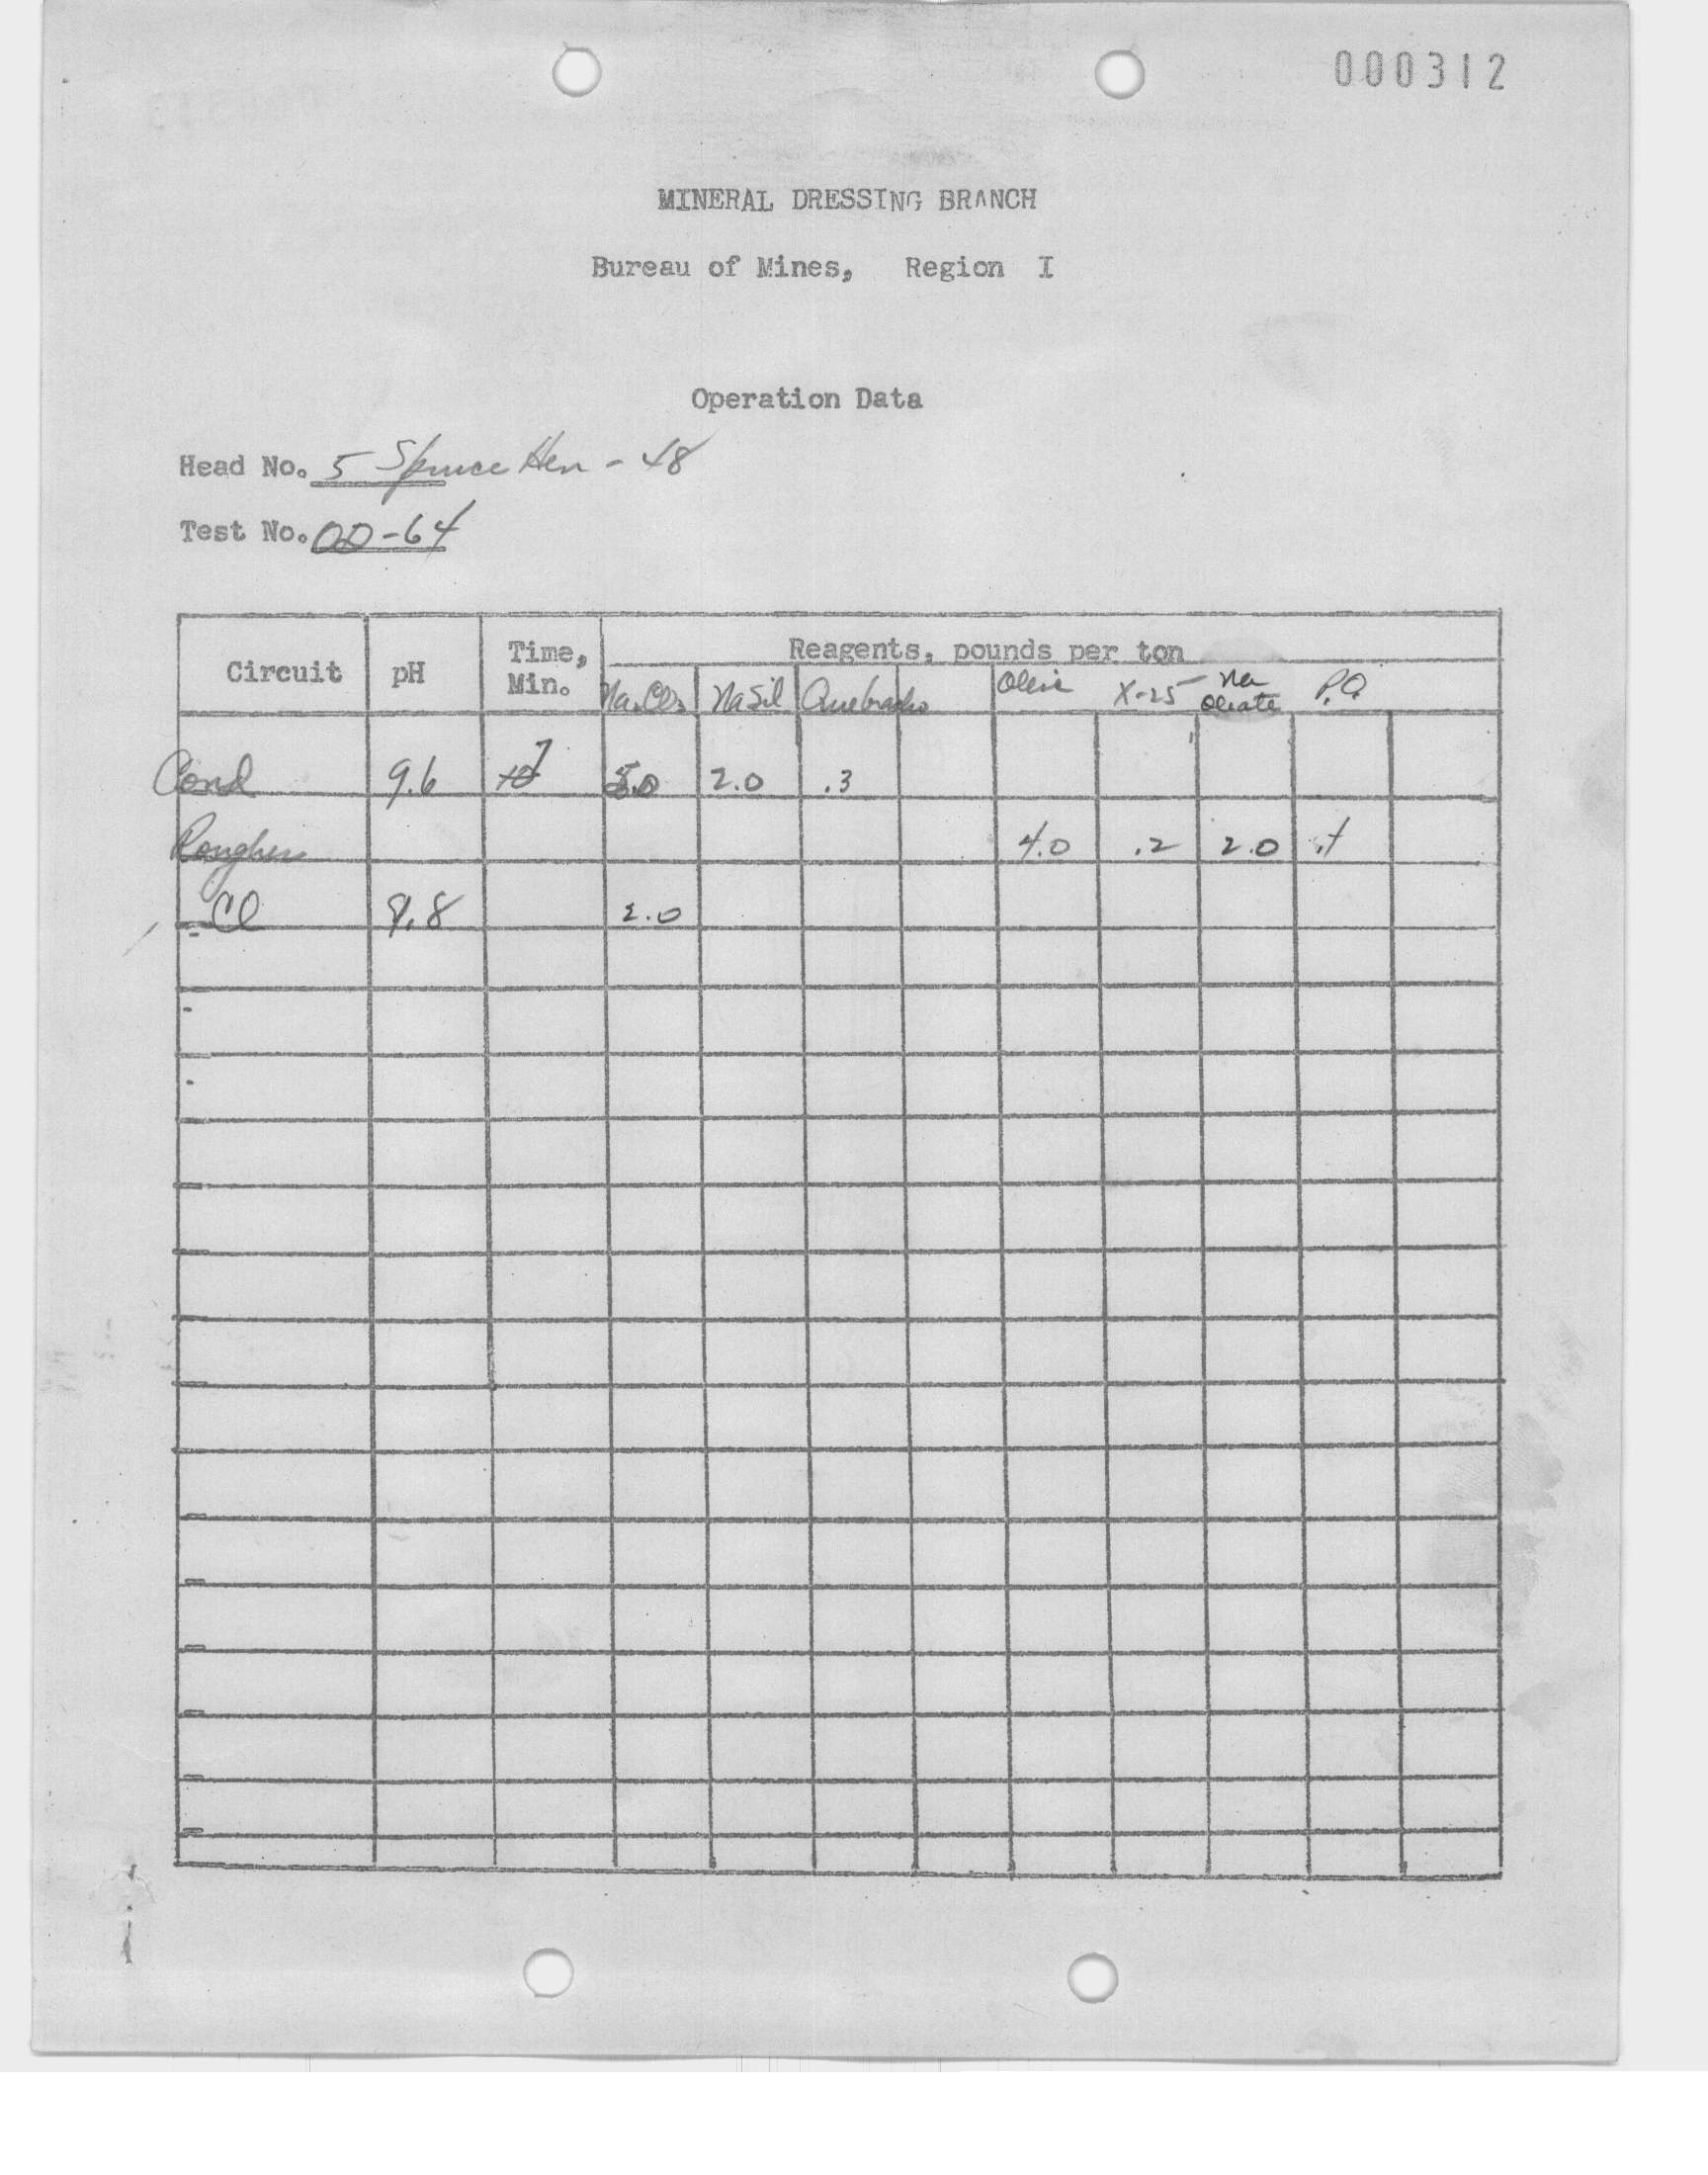 000312
MINERAL DRESSING BRANCH
Bureau of Mines, Region I
Operation Data
Head No. 5 Spruce Hen - 48
Test No. OD-64
Circuit pH Time, Min. Reagents, pounds per ton
Na2CO3 NaSil Quebracho Oleic X-25 Na Oleate P.O.
Cond 9.6 7 5.0 2.0 .3
Rougher 4.0 .2 2.0 .1
Cl 9.8 2.0